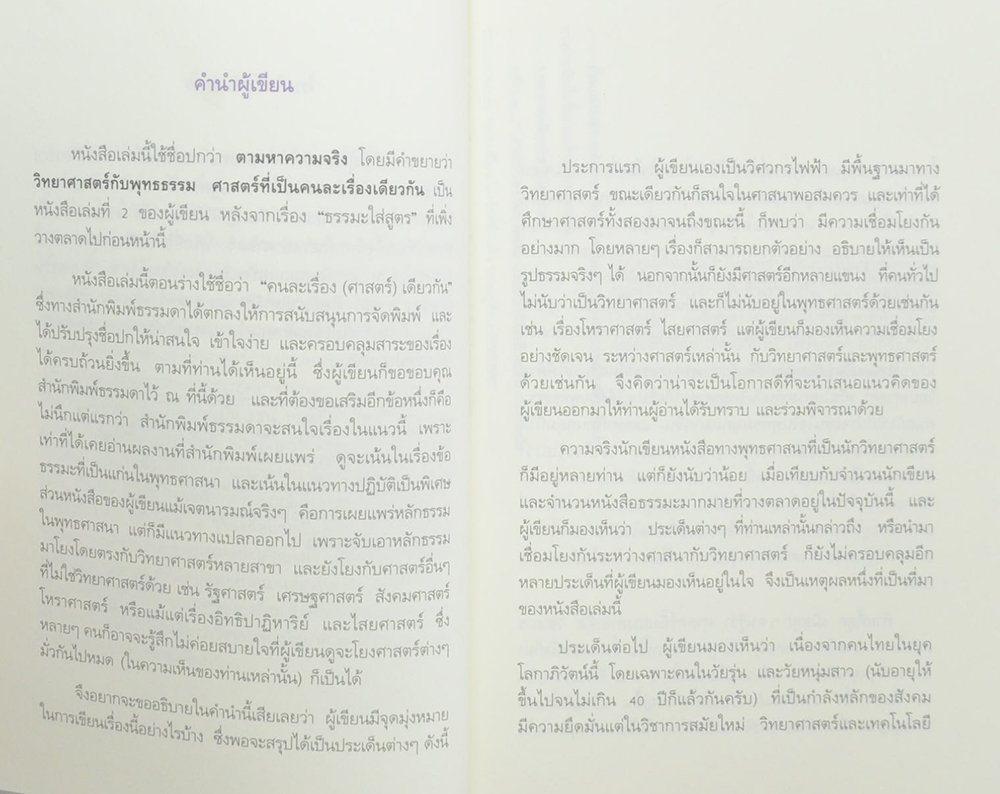 คำนำผู้เขียน
หนังสือเล่มนี้ใช้ชื่อปกว่า ตามหาความจริง โดยมีคำขยายว่า
วิทยาศาสตร์กับพุทธธรรม ศาสตร์ที่เป็นคนละเรื่องเดียวกัน เป็น
หนังสือเล่มที่ 2 ของผู้เขียน หลังจากเรื่อง “ธรรมะใส่สูตร” ที่เพิ่ง
วางตลาดไปก่อนหน้านี้
หนังสือเล่มนี้ตอนร่างใช้ชื่อว่า “คนละเรื่อง (ศาสตร์) เดียวกัน”
ซึ่งทางสำนักพิมพ์ธรรมดาได้ตกลงให้การสนับสนุนการจัดพิมพ์ และ
ได้ปรับปรุงชื่อปกให้น่าสนใจ เข้าใจง่าย และครอบคลุมสาระของเรื่อง
ได้ครบถ้วนยิ่งขึ้น ตามที่ท่านได้เห็นอยู่นี้ ซึ่งผู้เขียนก็ขอขอบคุณ
สำนักพิมพ์ธรรมดาไว้ ณ ที่นี้ด้วย และที่ต้องขอเสริมอีกข้อหนึ่งก็คือ
ไม่นึกแต่แรกว่า สำนักพิมพ์ธรรมดาจะสนใจเรื่องในแนวนี้ เพราะ
เท่าที่ได้เคยอ่านผลงานที่สำนักพิมพ์เผยแพร่ ดูจะเน้นในเรื่องข้อ
ธรรมะที่เป็นแก่นในพุทธศาสนา และเน้นในแนวทางปฏิบัติเป็นพิเศษ
ส่วนหนังสือของผู้เขียนแม้เจตนารมณ์จริงๆ คือการเผยแพร่หลักธรรม
ในพุทธศาสนา แต่ก็มีแนวทางแปลกออกไป เพราะจับเอาหลักธรรม
มาโยงโดยตรงกับวิทยาศาสตร์หลายสาขา และยังโยงกับศาสตร์อื่นๆ
ที่ไม่ใช่วิทยาศาสตร์ด้วย เช่น รัฐศาสตร์ เศรษฐศาสตร์ สังคมศาสตร์
โหราศาสตร์ หรือแม้แต่เรื่องอิทธิปาฏิหาริย์ และไสยศาสตร์ ซึ่ง
หลายๆ คนก็อาจจะรู้สึกไม่ค่อยสบายใจที่ผู้เขียนดูจะโยงศาสตร์ต่างๆ
มั่วกันไปหมด (ในความเห็นของท่านเหล่านั้น) ก็เป็นได้
จึงอยากจะขออธิบายในคำนำนี้เสียเลยว่า ผู้เขียนมีจุดมุ่งหมาย
ในการเขียนเรื่องนี้อย่างไรบ้าง ซึ่งพอจะสรุปได้เป็นประเด็นต่างๆ ดังนี้
ประการแรก ผู้เขียนเองเป็นวิศวกรไฟฟ้า มีพื้นฐานมาทาง
วิทยาศาสตร์ ขณะเดียวกันก็สนใจในศาสนาพอสมควร และเท่าที่ได้
ศึกษาศาสตร์ทั้งสองมาจนถึงขณะนี้ ก็พบว่า มีความเชื่อมโยงกัน
อย่างมาก โดยหลายๆ เรื่องก็สามารถยกตัวอย่าง อธิบายให้เห็นเป็น
รูปธรรมจริงๆ ได้ นอกจากนั้นก็ยังมีศาสตร์อีกหลายแขนง ที่คนทั่วไป
ไม่นับว่าเป็นวิทยาศาสตร์ และก็ไม่นับอยู่ในพุทธศาสตร์ด้วยเช่นกัน
เช่น เรื่องโหราศาสตร์ ไสยศาสตร์ แต่ผู้เขียนก็มองเห็นความเชื่อมโยง
อย่างชัดเจน ระหว่างศาสตร์เหล่านั้น กับวิทยาศาสตร์และพุทธศาสตร์
ด้วยเช่นกัน จึงคิดว่าน่าจะเป็นโอกาสดีที่จะนำเสนอแนวคิดของ
ผู้เขียนออกมาให้ท่านผู้อ่านได้รับทราบ และร่วมพิจารณาด้วย
ความจริงนักเขียนหนังสือทางพุทธศาสนาที่เป็นนักวิทยาศาสตร์
ก็มีอยู่หลายท่าน แต่ก็ยังนับว่าน้อย เมื่อเทียบกับจำนวนนักเขียน
และจำนวนหนังสือธรรมะมากมายที่วางตลาดอยู่ในปัจจุบันนี้ และ
ผู้เขียนก็มองเห็นว่า ประเด็นต่างๆ ที่ท่านเหล่านั้นกล่าวถึง หรือนำมา
เชื่อมโยงกันระหว่างศาสนากับวิทยาศาสตร์ ก็ยังไม่ครอบคลุมอีก
หลายประเด็นที่ผู้เขียนมองเห็นอยู่ในใจ จึงเป็นเหตุผลหนึ่งที่เป็นที่มา
ของหนังสือเล่มนี้
ประเด็นต่อไป ผู้เขียนมองเห็นว่า เนื่องจากคนไทยในยุค
โลกาภิวัตน์นี้ โดยเฉพาะคนในวัยรุ่น และวัยหนุ่มสาว (นับอายุให้
ขึ้นไปจนไม่เกิน 40 ปีก็แล้วกันครับ) ที่เป็นกำลังหลักของสังคม
มีความยึดมั่นแต่ในวิชาการสมัยใหม่ วิทยาศาสตร์และเทคโนโลยี